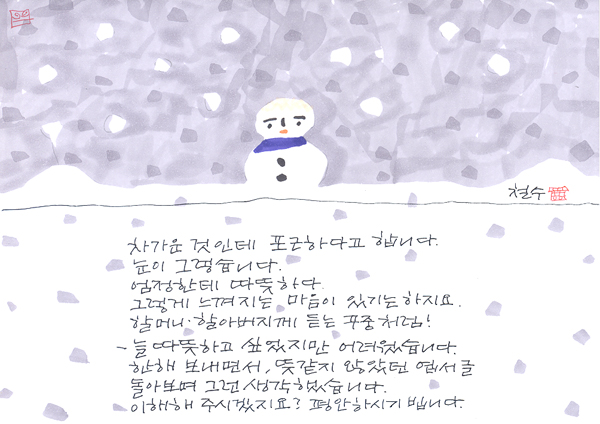 철수
차가운 것인데 포근하다고 합니다.
눈이 그렇습니다.
엄정한데 따뜻하다.
그렇게 느껴지는 마음이 있기는하지요.
할머니·할아버지께 듣는 꾸중처럼!
- 늘 따뜻하고 싶었지만 어려웠습니다.
한해 보내면서, 뜻같지 않았던 엽서글
돌아보며 그런 생각했습니다.
이해해 주시겠지요? 평안하시기 빕니다.